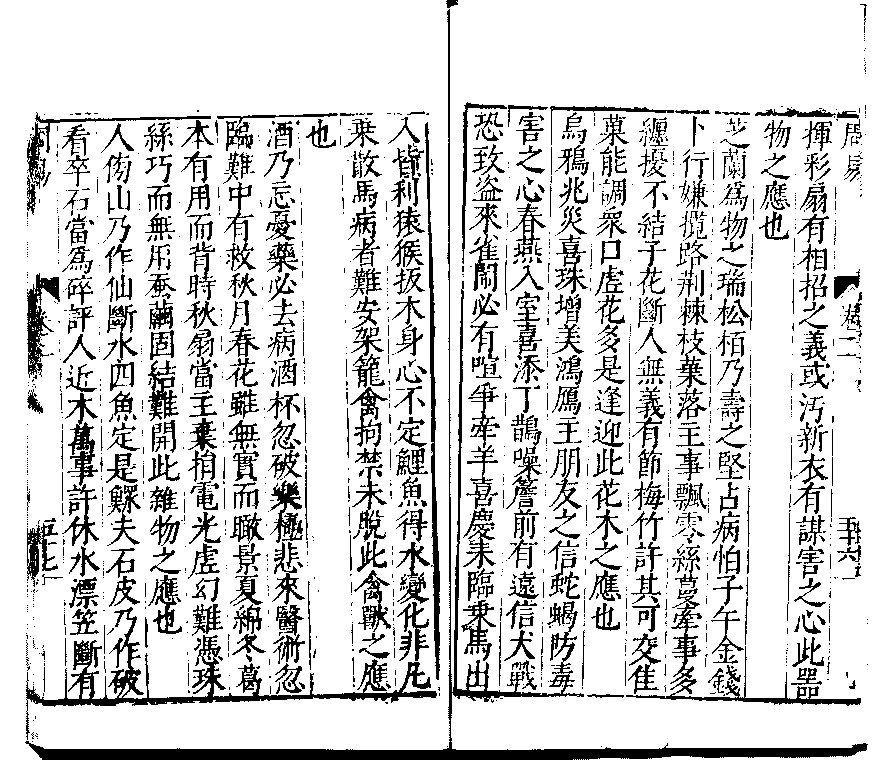 揮彩扇有相招之義或汚新衣有謀害之心此器
物之應也
芝蘭爲物之瑞松栢乃壽之堅占病怕子午金錢
卜行嫌攬路荆棘枝葉落主事飄零絲蔓牽事多
纏擾不結子花斷人無義有節梅竹許其可交隹
菓能調衆口虛花多是逢迎此花木之應也
烏鴉兆災喜珠增美鴻鴈主朋友之信蛇蝎防毒
害之心春燕入室喜添丁鵲噪簷前有遠信犬戰
恐致盜來雀鬧必有喧爭牽羊喜慶來臨乗馬出
入皆利猿猴扳木身心不定鯉魚得水變化非凡
乗散馬病者難安架籠禽拘禁未脫此禽獸之應
也
酒乃忘憂藥必去病酒杯忽破樂極悲來醫術忽
臨難中有救秋月春花雖無實而瞰景夏綿冬葛
本有用而背時秋扇當主棄捐電光虛幻難憑珠
絲巧而無用蚕繭固結難開此雜物之應也
人傍山乃作仙斷水四魚定是鰥夫石皮乃作破
看卒石當爲碎評人近木萬事許休水漂笠斷有
卷二
五十六
卷二
五十七